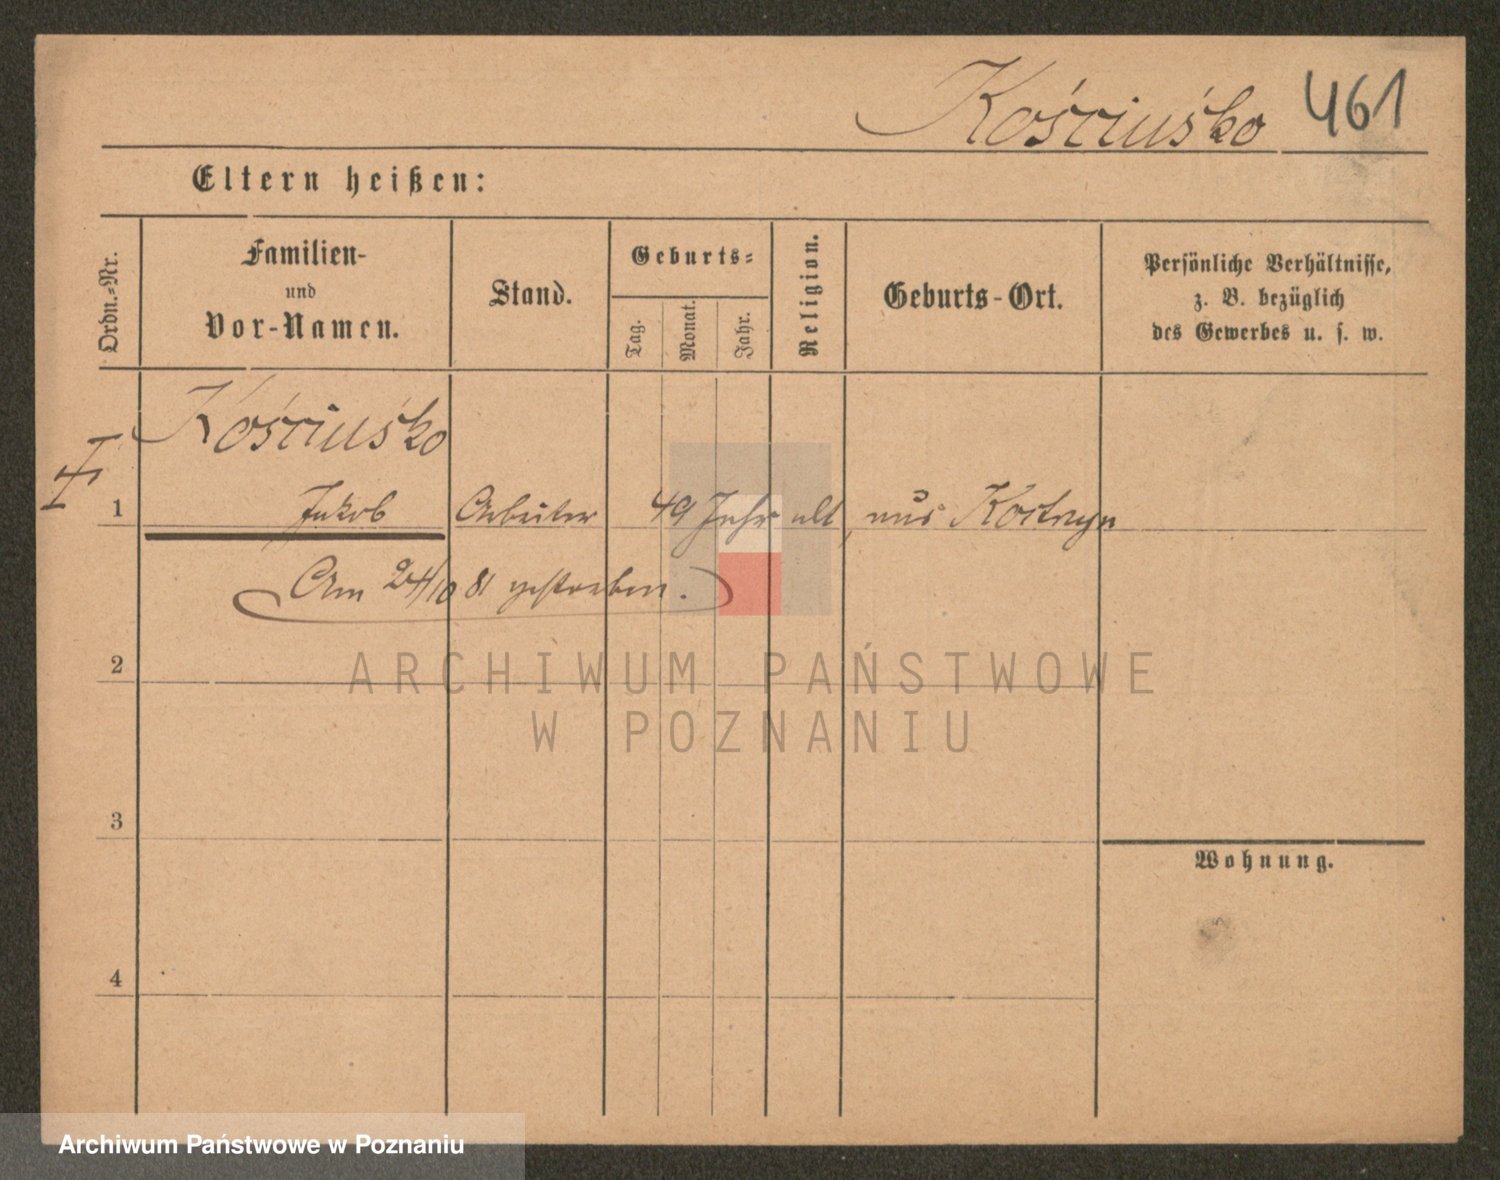 Kościuśko 461
Eltern heißen:
Ordn.-Nr.
Familien-
und
Vor-Namen.
Stand.
Geburts-
Tag.
Monat.
Jahr.
Religion.
Geburts-Ort.
Persönliche Verhältnisse,
z. B. bezüglich
des Gewerbes u. s. w.
Kościuśko
1 Jakob Arbeiter 49 Jahr alt, aus Kostrzyn
Am 24/10 81 gestorben.
2
ARCHIWUM PAŃSTWOWE
W POZNANIU
3
Wohnung.
4
Archiwum Państwowe w Poznaniu